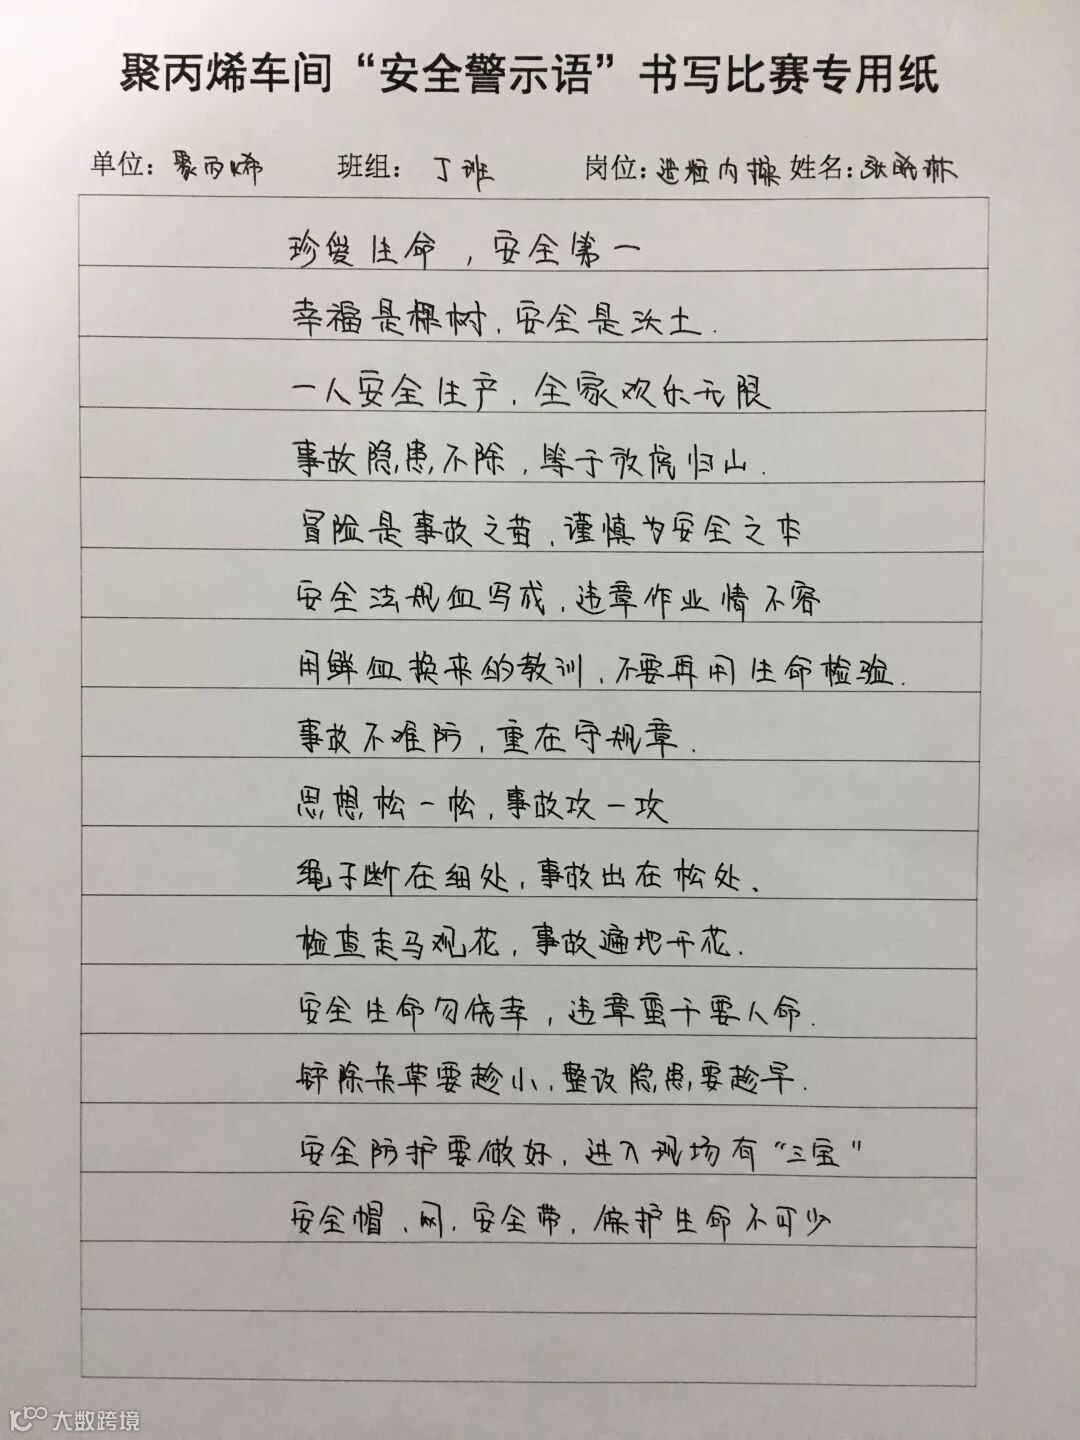 聚丙烯车间“安全警示语”书写比赛专用纸
单位：聚丙烯 班组：丁班 岗位：造粒内操 姓名：张晓琳
珍爱生命，安全第一
幸福是棵树，安全是沃土．
一人安全生产，全家欢乐无限
事故隐患不除，等于放虎归山．
冒险是事故之苗，谨慎为安全之本
安全法规血写成，违章作业情不容
用鲜血换来的教训，不要再用生命检验．
事故不难防，重在守规章．
思想松一松，事故攻一攻
绳子断在细处，事故出在松处、
检查走马观花，事故遍地开花．
安全生命勿侥幸，违章蛮干要人命．
铲除杂草要趁小，整改隐患要趁早．
安全防护要做好，进入现场有“三宝”
安全帽、网，安全带，保护生命不可少
大数跨境